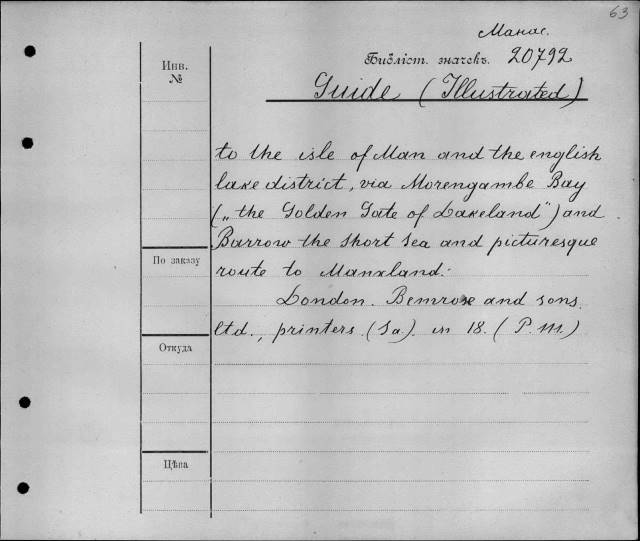 63
Манас.
Библіот. значекъ. 20792
Инв.
№
Guide (Illustrated)
to the isle of Man and the english
lake district, via Morengambe Bay
(„the Golden Gate of Lakeland") and
Barrow the short sea and picturesque
По заказу
route to Manxland.
London. Bemrose and sons.
ltd., printers. (Sa). in 18. (P. m.)
Откуда
Цѣна